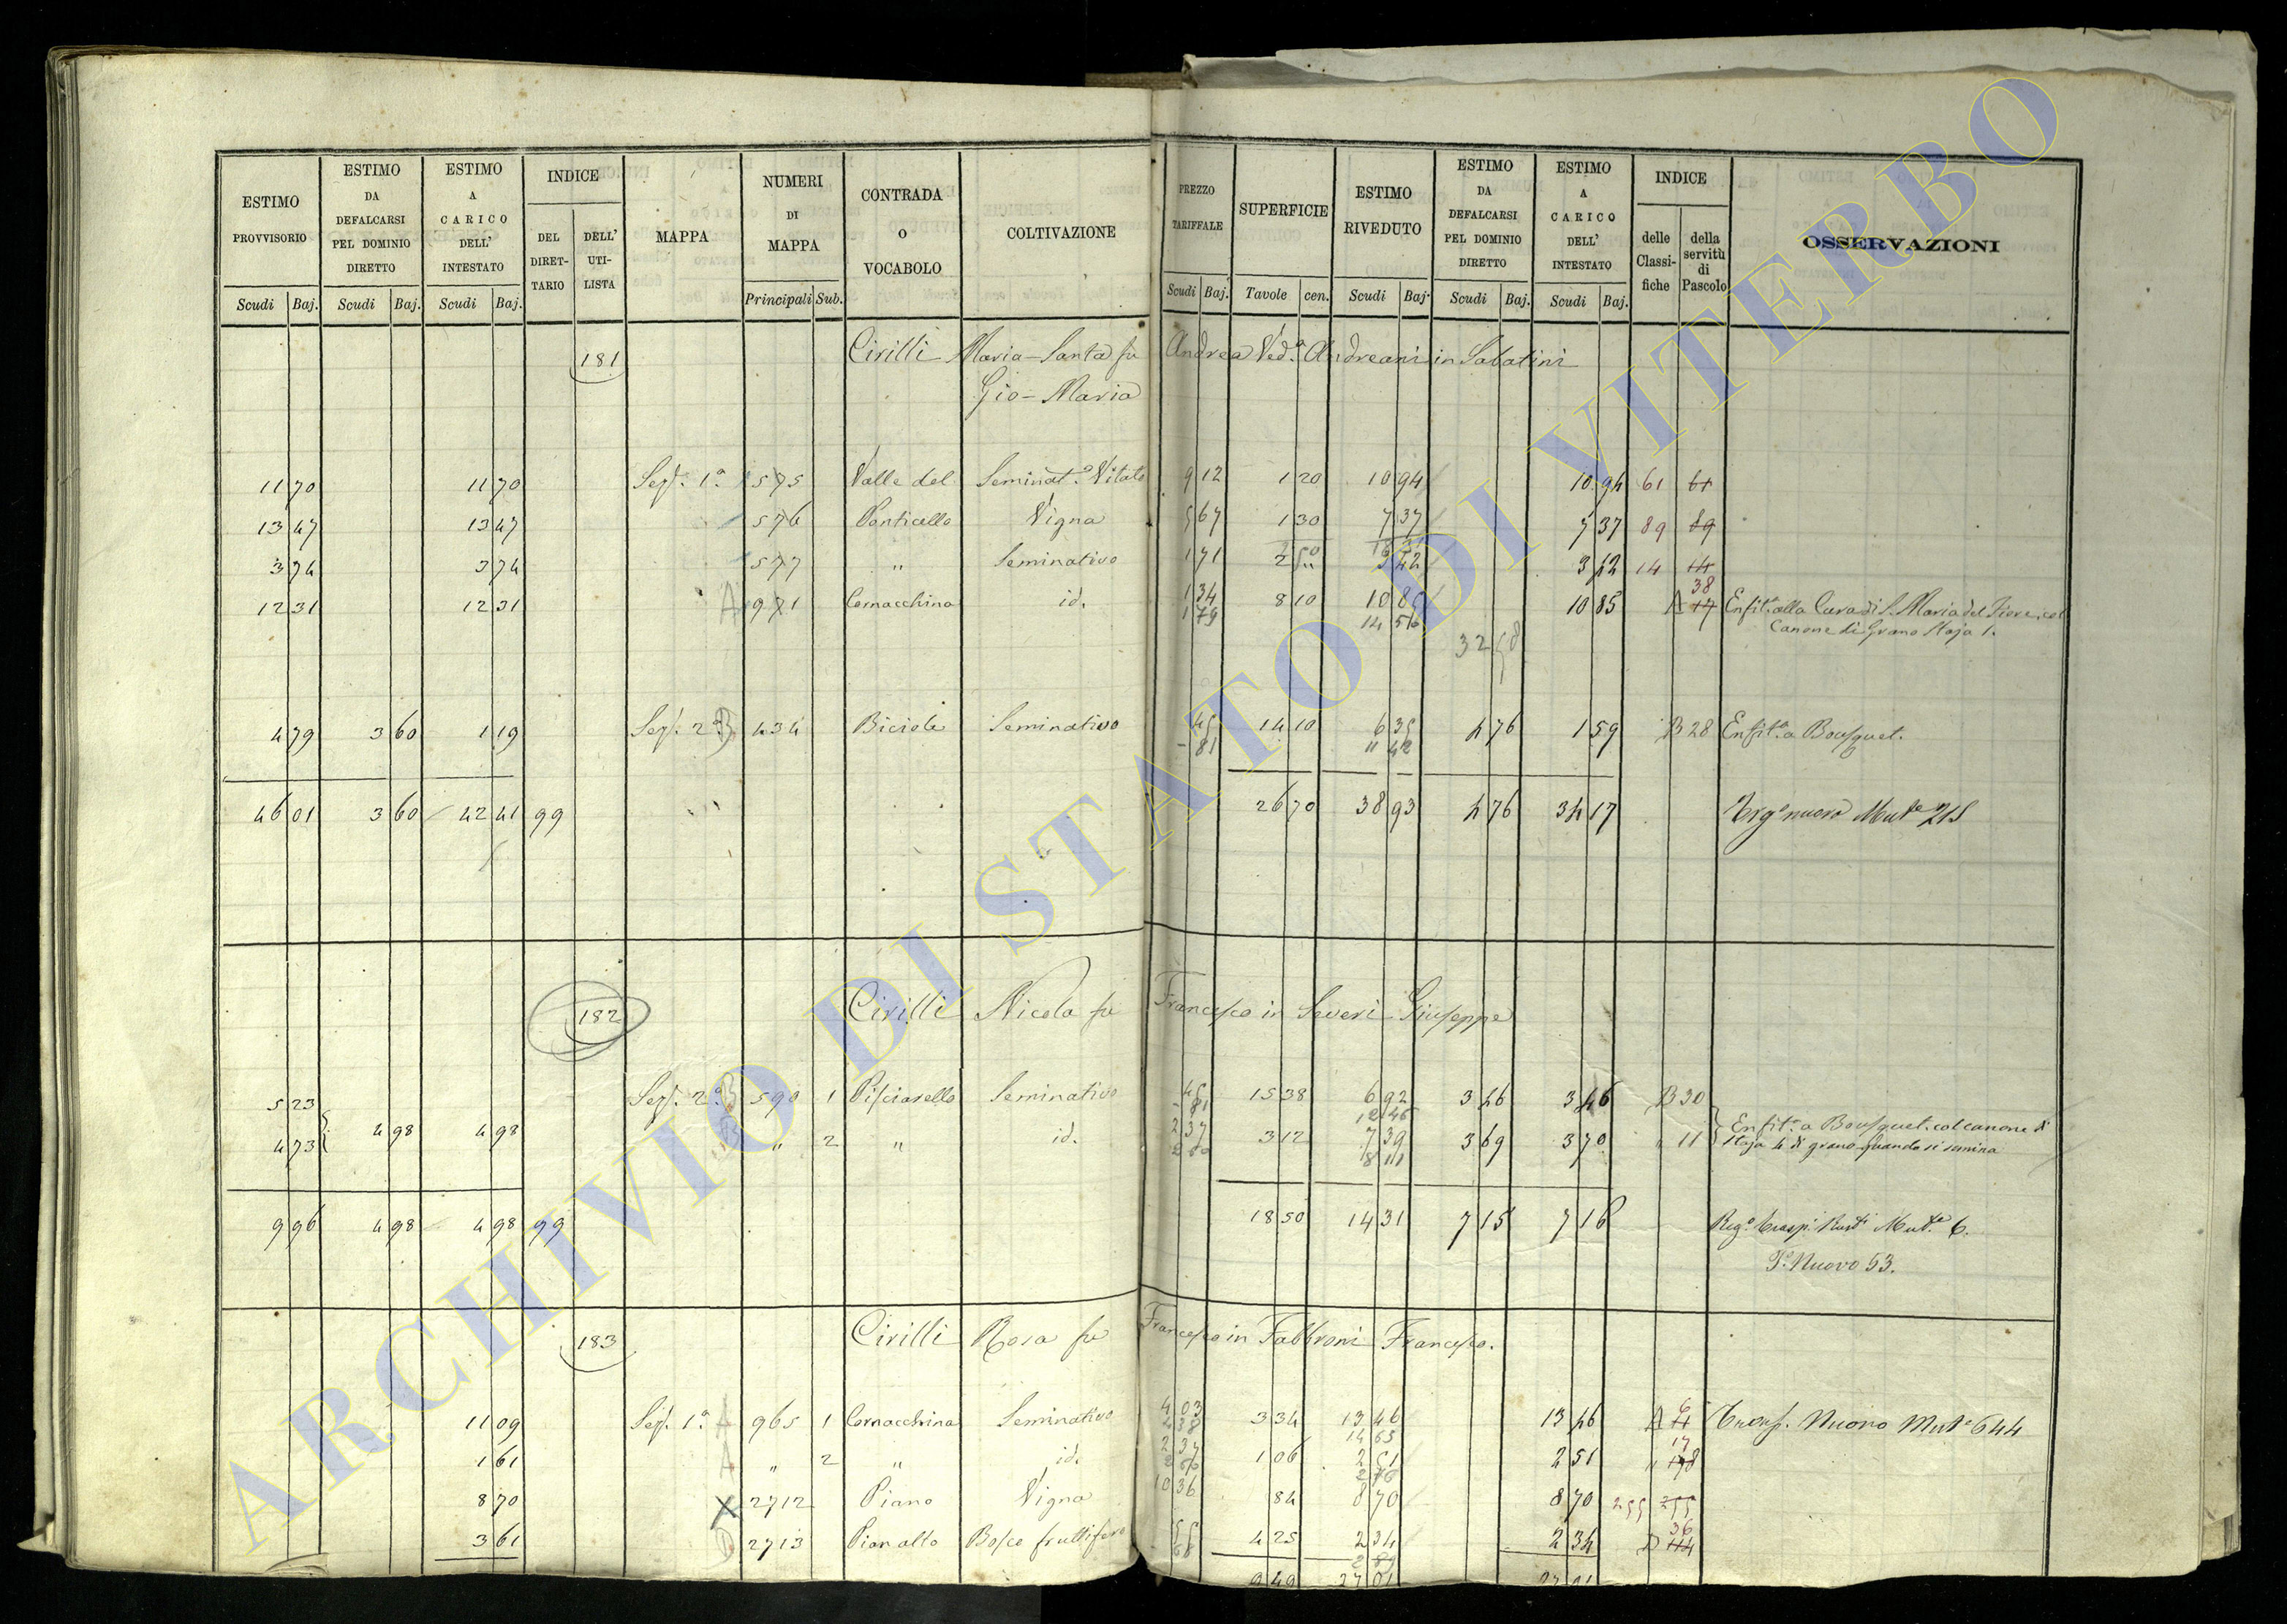 ESTIMO PROVVISORIO | ESTIMO DA DEFALCARSI PEL DOMINIO DIRETTO | ESTIMO A CARICO DELL' INTESTATO | INDICE | MAPPA | NUMERI DI MAPPA | CONTRADA O VOCABOLO | COLTIVAZIONE | PREZZO TARIFFALE | SUPERFICIE | ESTIMO RIVEDUTO | ESTIMO DA DEFALCARSI PEL DOMINIO DIRETTO | ESTIMO A CARICO DELL' INTESTATO | INDICE | OSSERVAZIONI
DEL DIRET-TARIO | DELL' UTI-LISTA | delle Classi-fiche | della servitù di Pascolo
Scudi | Baj. | Scudi | Baj. | Scudi | Baj. | Principali | Sub. | Scudi | Baj. | Tavole | cen. | Scudi | Baj. | Scudi | Baj. | Scudi | Baj.
181 Cirilli Maria-Santa fu Andrea Ved.a Andreani in Sabatini
Gio-Maria
11 70 | 11 70 | Sez. 1a | 575 | Valle del | Seminat.o Vitato | 9 12 | 1 20 | 10 94 | 10 94 | 61 | 61
13 47 | 13 47 | 576 | Ponticello | Vigna | 5 67 | 1 30 | 7 37 | 7 37 | 89 | 89
2 50
3 74 | 3 74 | 577 | " | Seminativo | 1 71 | 2 " | 3 42 | 3 42 | 14 | 14
12 31 | 12 31 | A | 971 | Cornacchina | id. | 1 34 | 8 10 | 10 85 | 10 85 | A 17 38 | Enfit.a alla Cura di S. Maria del Fiore, col
1 79 | 14 50 | Canone di Grano Staja 1.
32 58
4 79 | 3 60 | 1 19 | Sez. 2a B | 434 | Biciole | Seminativo | 45 | 14 10 | 6 35 | 4 76 | 1 59 | B 28 | Enfit.a a Bousquet.
- 81 | 11 42
46 01 | 3 60 | 42 41 | 99 | 26 70 | 38 93 | 4 76 | 34 17 | nuovo Mut.e 215
182 Cirilli Nicola fu Francesco in Severi Giuseppe
5 23 | Sez. 2a B | 590 | 1 | Pisciarello | Seminativo | 45 | 15 38 | 6 92 | 3 46 | 3 46 | B 30
- 81 | 12 46
4 98 | 4 98 | Enfit.a a Bousquet. col canone di
4 73 | B | " | 2 | " | id. | 2 37 | 3 12 | 7 39 | 3 69 | 3 70 | " 11 | Staja 4 di grano quando si semina
2 60 | 8 11
9 96 | 4 98 | 4 98 | 99 | 18 50 | 14 31 | 7 15 | 7 16 | Mut.e 6.
T.o Nuovo 53.
183 Cirilli Rosa fu Francesco in Fabbroni Francesco.
11 09 | Sez. 1a A | 965 | 1 | Cornacchina | Seminativo | 4 03 | 3 34 | 13 46 | 13 46 | A 6 | Trasp. Nuovo Mut.e 644
4 38 | 14 63
1 61 | A | " | 2 | " | id. | 2 37 | 1 06 | 2 51 | 2 51 | " 17
2 60 | 2 76
8 70 | X | 2712 | Piano | Vigna | 10 36 | 84 | 8 70 | 8 70 | 255 | 255
3 61 | D | 2713 | Pian alto | Bosco fruttifero | 55 | 4 25 | 2 34 | 2 34 | D 36
68 | 2 89
9 49 | 27 01 | 27 01
ARCHIVIO DI STATO DI VITERBO